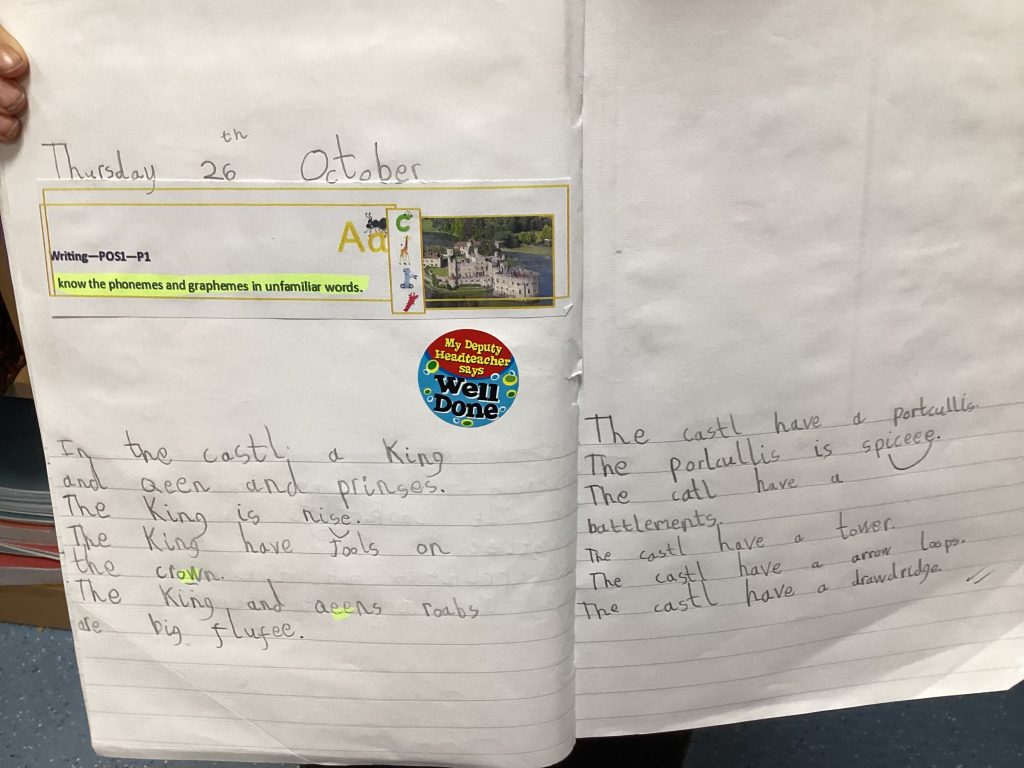 Thursday 26th October
Aa
Writing—POS1—P1
know the phonemes and graphemes in unfamiliar words.
My Deputy
Headteacher
says
Well
Done
In the castl. a King
and qeen and prinses.
The King is nise.
The King have jools on
the crown.
The King and qeens roabs
are big flufee.
The castl have a portcullis.
The portcullis is spiceee.
The catl have a
battlements.
The castl have a tower.
The castl have a arrow loops.
The castl have a drawdridge.